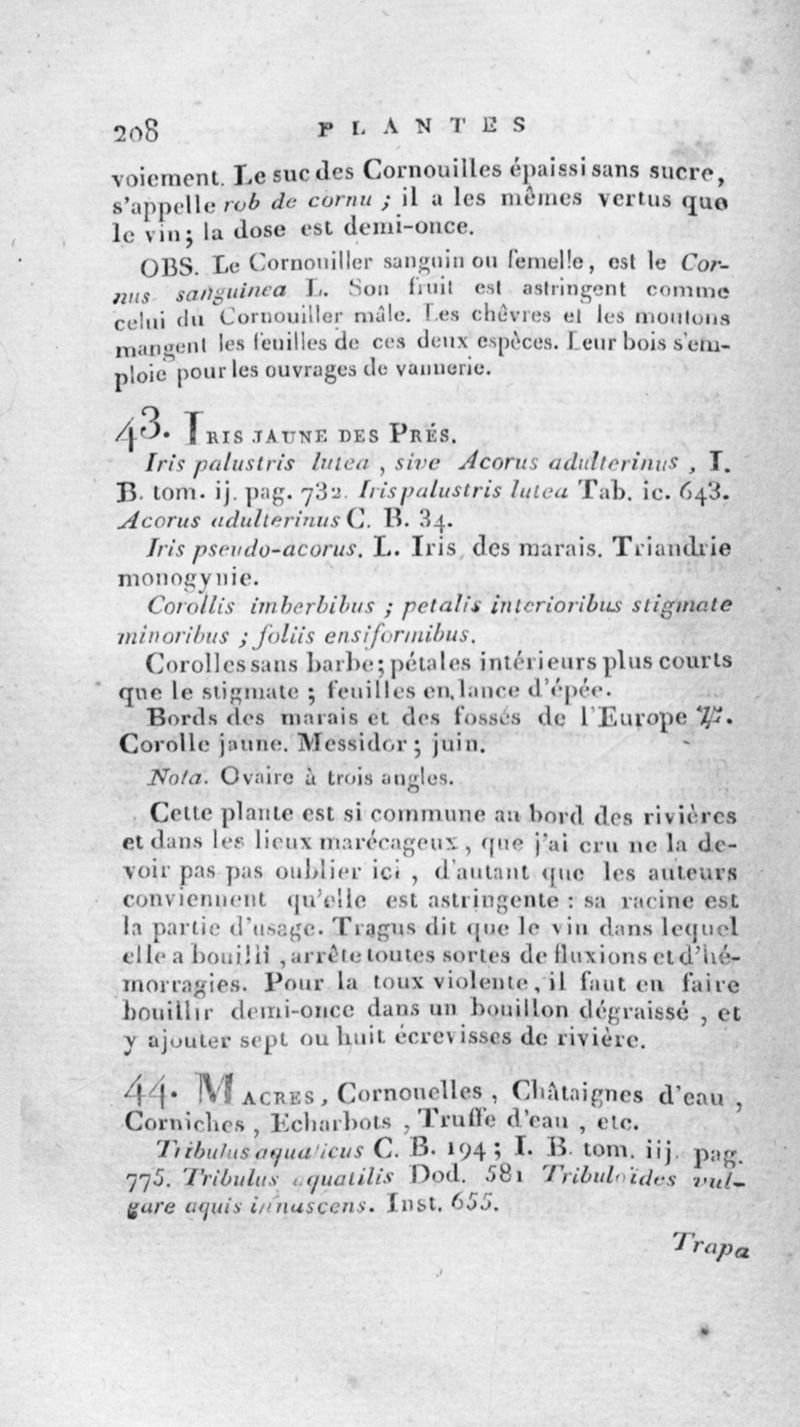 208 PLANTES
voiement. Le suc des Cornouilles épaissi sans sucre,
s'appelle rob de cornu ; il a les mêmes vertus que
le vin; la dose est demi-once.
OBS. Le Cornouiller sanguin ou femelle, est le Cor-
nus sanguinea L. Son fruit est astringent comme
celui du Cornouiller mâle. Les chèvres et les moutons
mangent les feuilles de ces deux espèces. Leur bois s'em-
ploie pour les ouvrages de vannerie.
43. IRIS JAUNE DES PRÉS.
Iris palustris lutea , sive Acorus adulterinus , I.
B. tom. ij. pag. 732. Iris palustris lutea Tab. ic. 643.
Acorus adulterinus C. B. 34.
Iris pseudo-acorus. L. Iris des marais. Triandrie
monogynie.
Corollis imberbibus ; petalis interioribus stigmate
minoribus ; foliis ensiformibus.
Corolles sans barbe; pétales intérieurs plus courts
que le stigmate ; feuilles en lance d'épée.
Bords des marais et des fossés de l'Europe ♃.
Corolle jaune. Messidor ; juin.
Nota. Ovaire à trois angles.
Cette plante est si commune au bord des rivières
et dans les lieux marécageux, que j'ai cru ne la de-
voir pas pas oublier ici , d'autant que les auteurs
conviennent qu'elle est astringente : sa racine est
la partie d'usage. Tragus dit que le vin dans lequel
elle a bouilli , arrête toutes sortes de fluxions et d'hé-
morragies. Pour la toux violente, il faut en faire
bouillir demi-once dans un bouillon dégraissé , et
y ajouter sept ou huit écrevisses de rivière.
44. MACRES, Cornouelles , Châtaignes d'eau ,
Corniches , Echarbots , Truffe d'eau , etc.
Tribulus aquaticus C. B. 194 ; I. B. tom. iij. pag.
775. Tribulus aquatilis Dod. 581 Tribuloides vul-
gare aquis innascens. Inst. 655.
Trapa